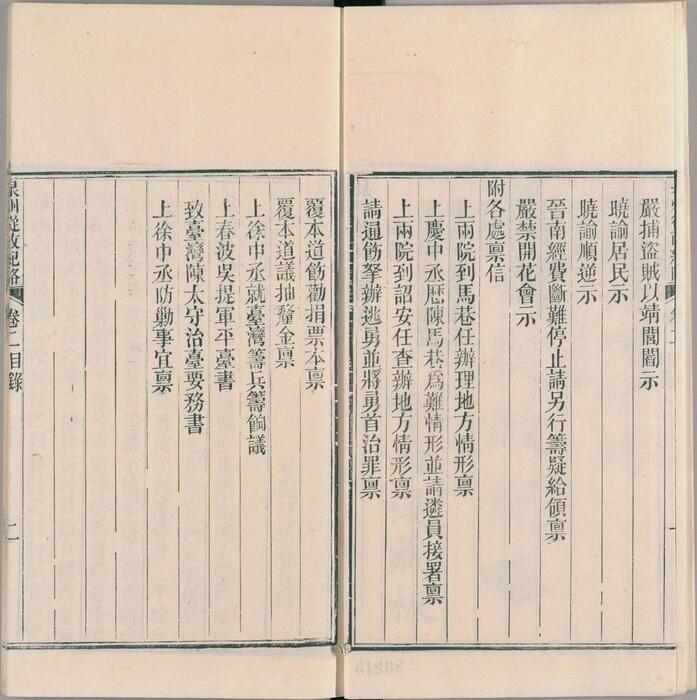 嚴捕盜賊以靖閭閻示
曉諭居民示
曉諭順逆示
晉南經費斷難停止請另行籌疑給領稟
嚴禁開花會示
附各處稟信
上兩院到馬巷任辦理地方情形稟
上慶中丞歷陳馬巷爲難情形並請遴員接署稟
上兩院到詔安任查辦地方情形稟
請通飭拏辦逃勇並將勇首治罪稟
覆本道飭勸捐票本稟
覆本道議抽釐金稟
上徐中丞就臺灣籌兵籌餉議
上春波吳提軍平臺書
致臺灣陳太守治臺要務書
上徐中丞防勦事宜稟
泉州從政紀略
卷二目錄
二